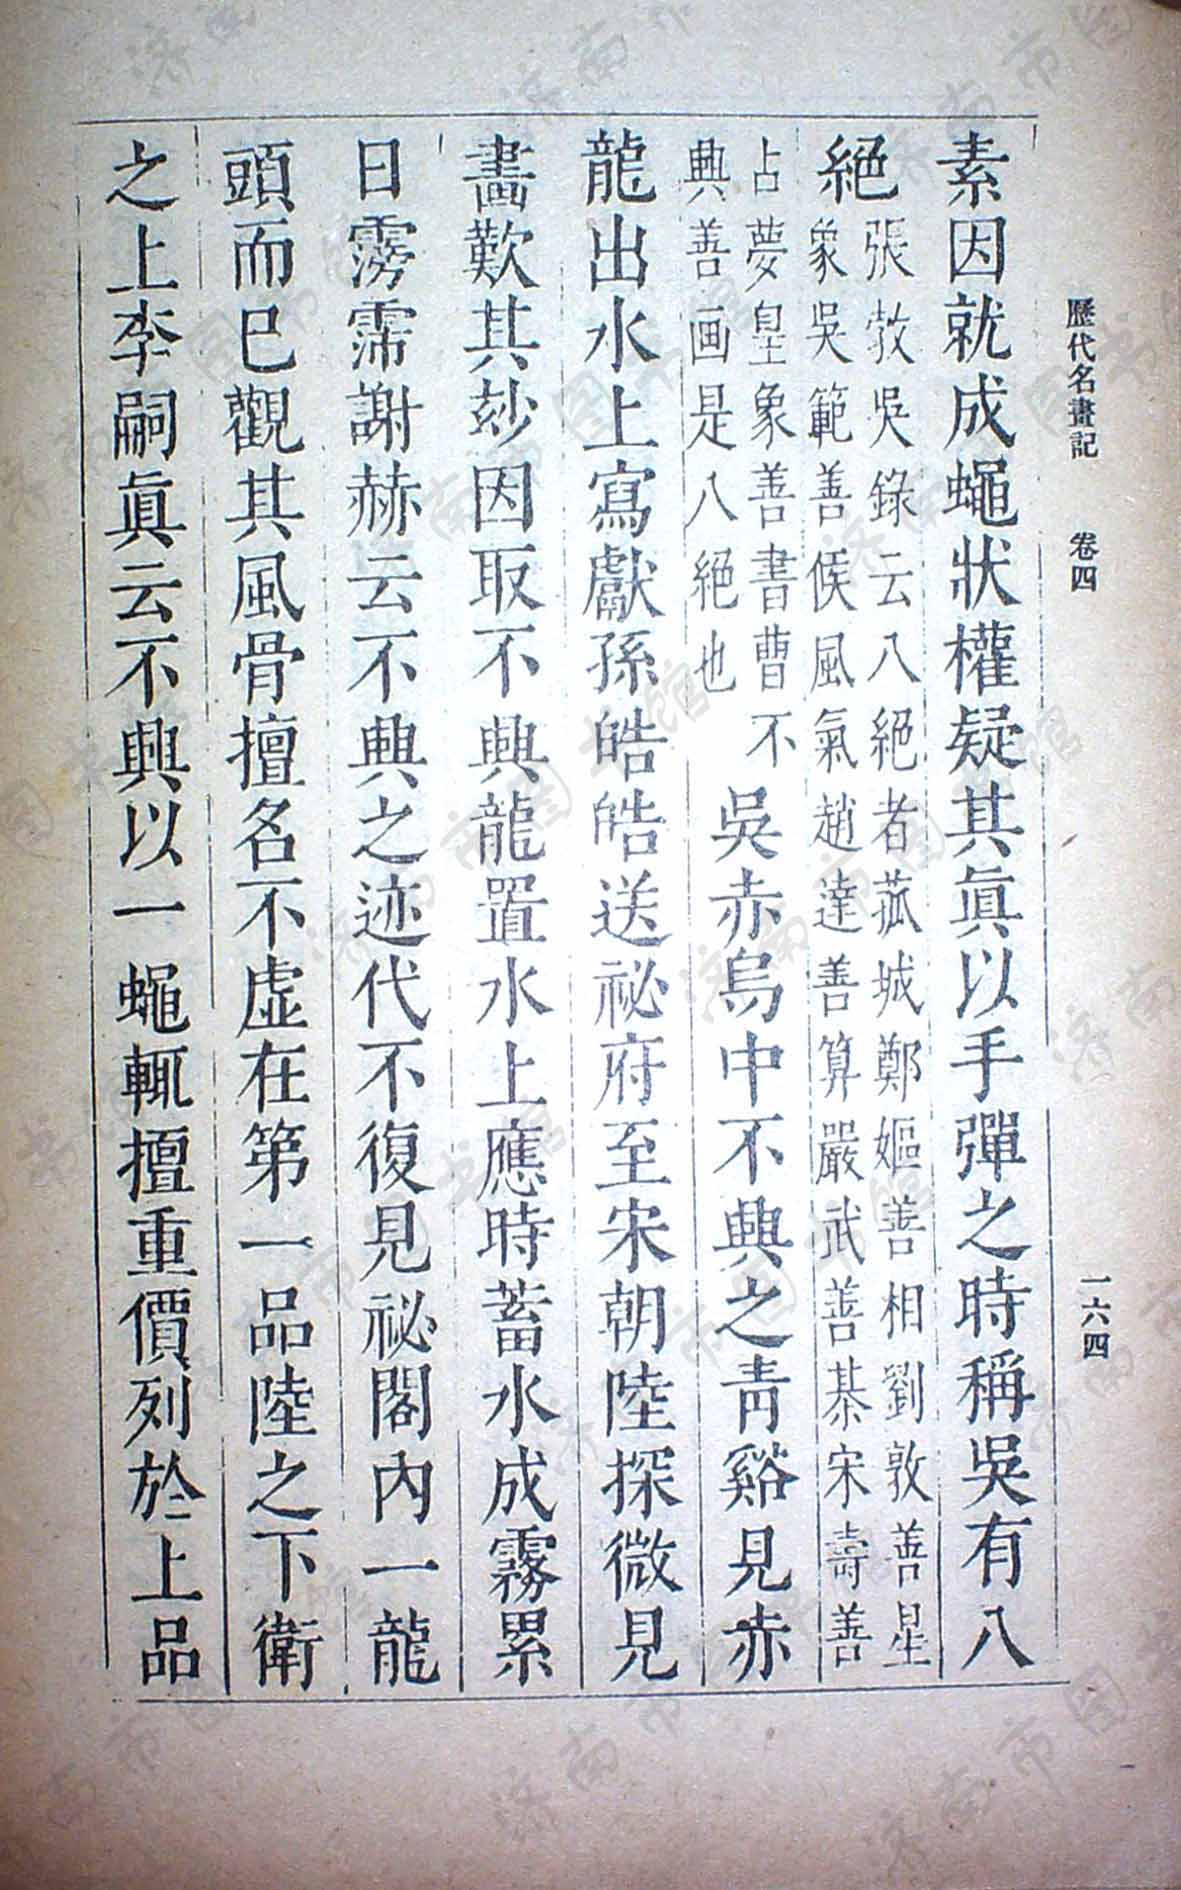 歷代名畫記 卷四 一六四
素因就成蠅狀權疑其眞以手彈之時稱吳有八
絕
張敦吳錄云八絕者菰城鄭嫗善相劉敦善星
象吳範善候風氣趙達善算嚴武善棊宋壽善
占夢皇象善書曹不
興善画是八絕也
吳赤烏中不興之青谿見赤
龍出水上寫獻孫皓皓送祕府至宋朝陸探微見
畫歎其妙因取不興龍置水上應時蓄水成霧累
日霶霈謝赫云不興之迹代不復見祕閣內一龍
頭而已觀其風骨擅名不虛在第一品陸之下衛
之上李嗣眞云不興以一蠅輒擅重價列於上品